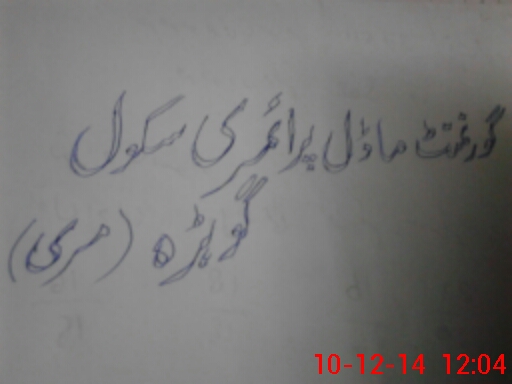 گورنمنٹ ماڈل پرائمری سکول
گوہڑہ (مری)
10-12-14 12:04